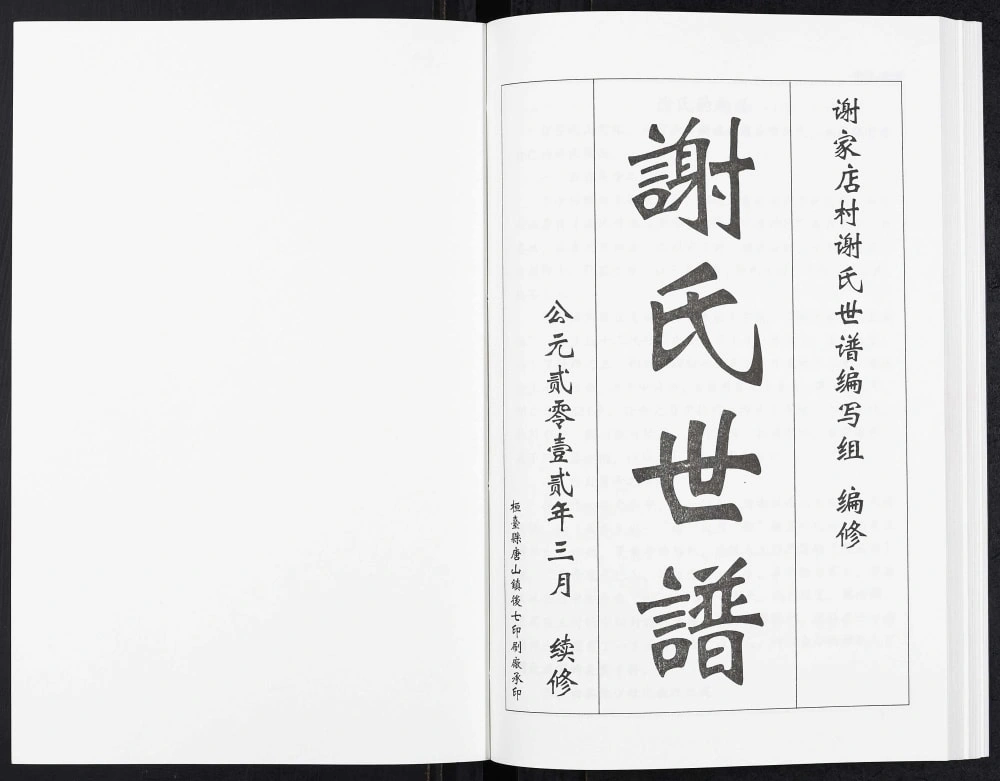 谢家店村谢氏世谱编写组 编修
謝氏世譜
公元贰零壹贰年三月 续修
桓臺縣唐山鎮後七印刷廠承印